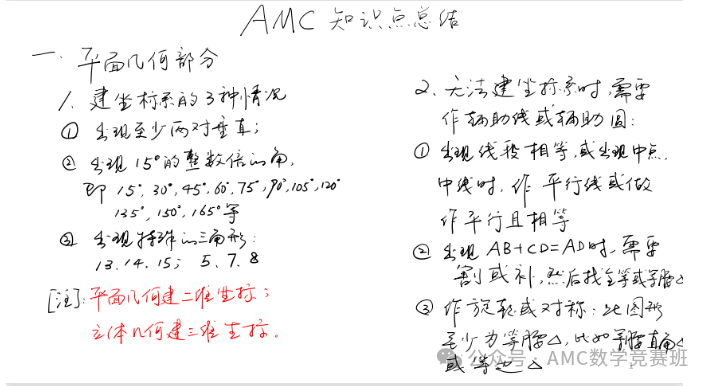 AMC 知识点总结
一. 平面几何部分
1. 建坐标系的3种情况
① 出现至少两对垂直;
② 出现15°的整数倍的角,
即 15°, 30°, 45°, 60°, 75°, 90°, 105°, 120°
135°, 150°, 165° 等
③ 出现特殊的三角形:
13. 14. 15; 5、7. 8
[注]: 平面几何建二维坐标;
立体几何建三维坐标.
2. 无法建坐标系时, 需要
作辅助线或辅助圆:
① 出现线段相等, 或出现中点.
中线时, 作 平行线或做
作平行且相等
② 出现 AB+CD=AD时, 需要
割或补, 然后找全等或等腰△
③ 作旋转或对称: 此图形
至少为等腰△, 比如等腰直角△
或等边△
公众号 · AMC数学竞赛班